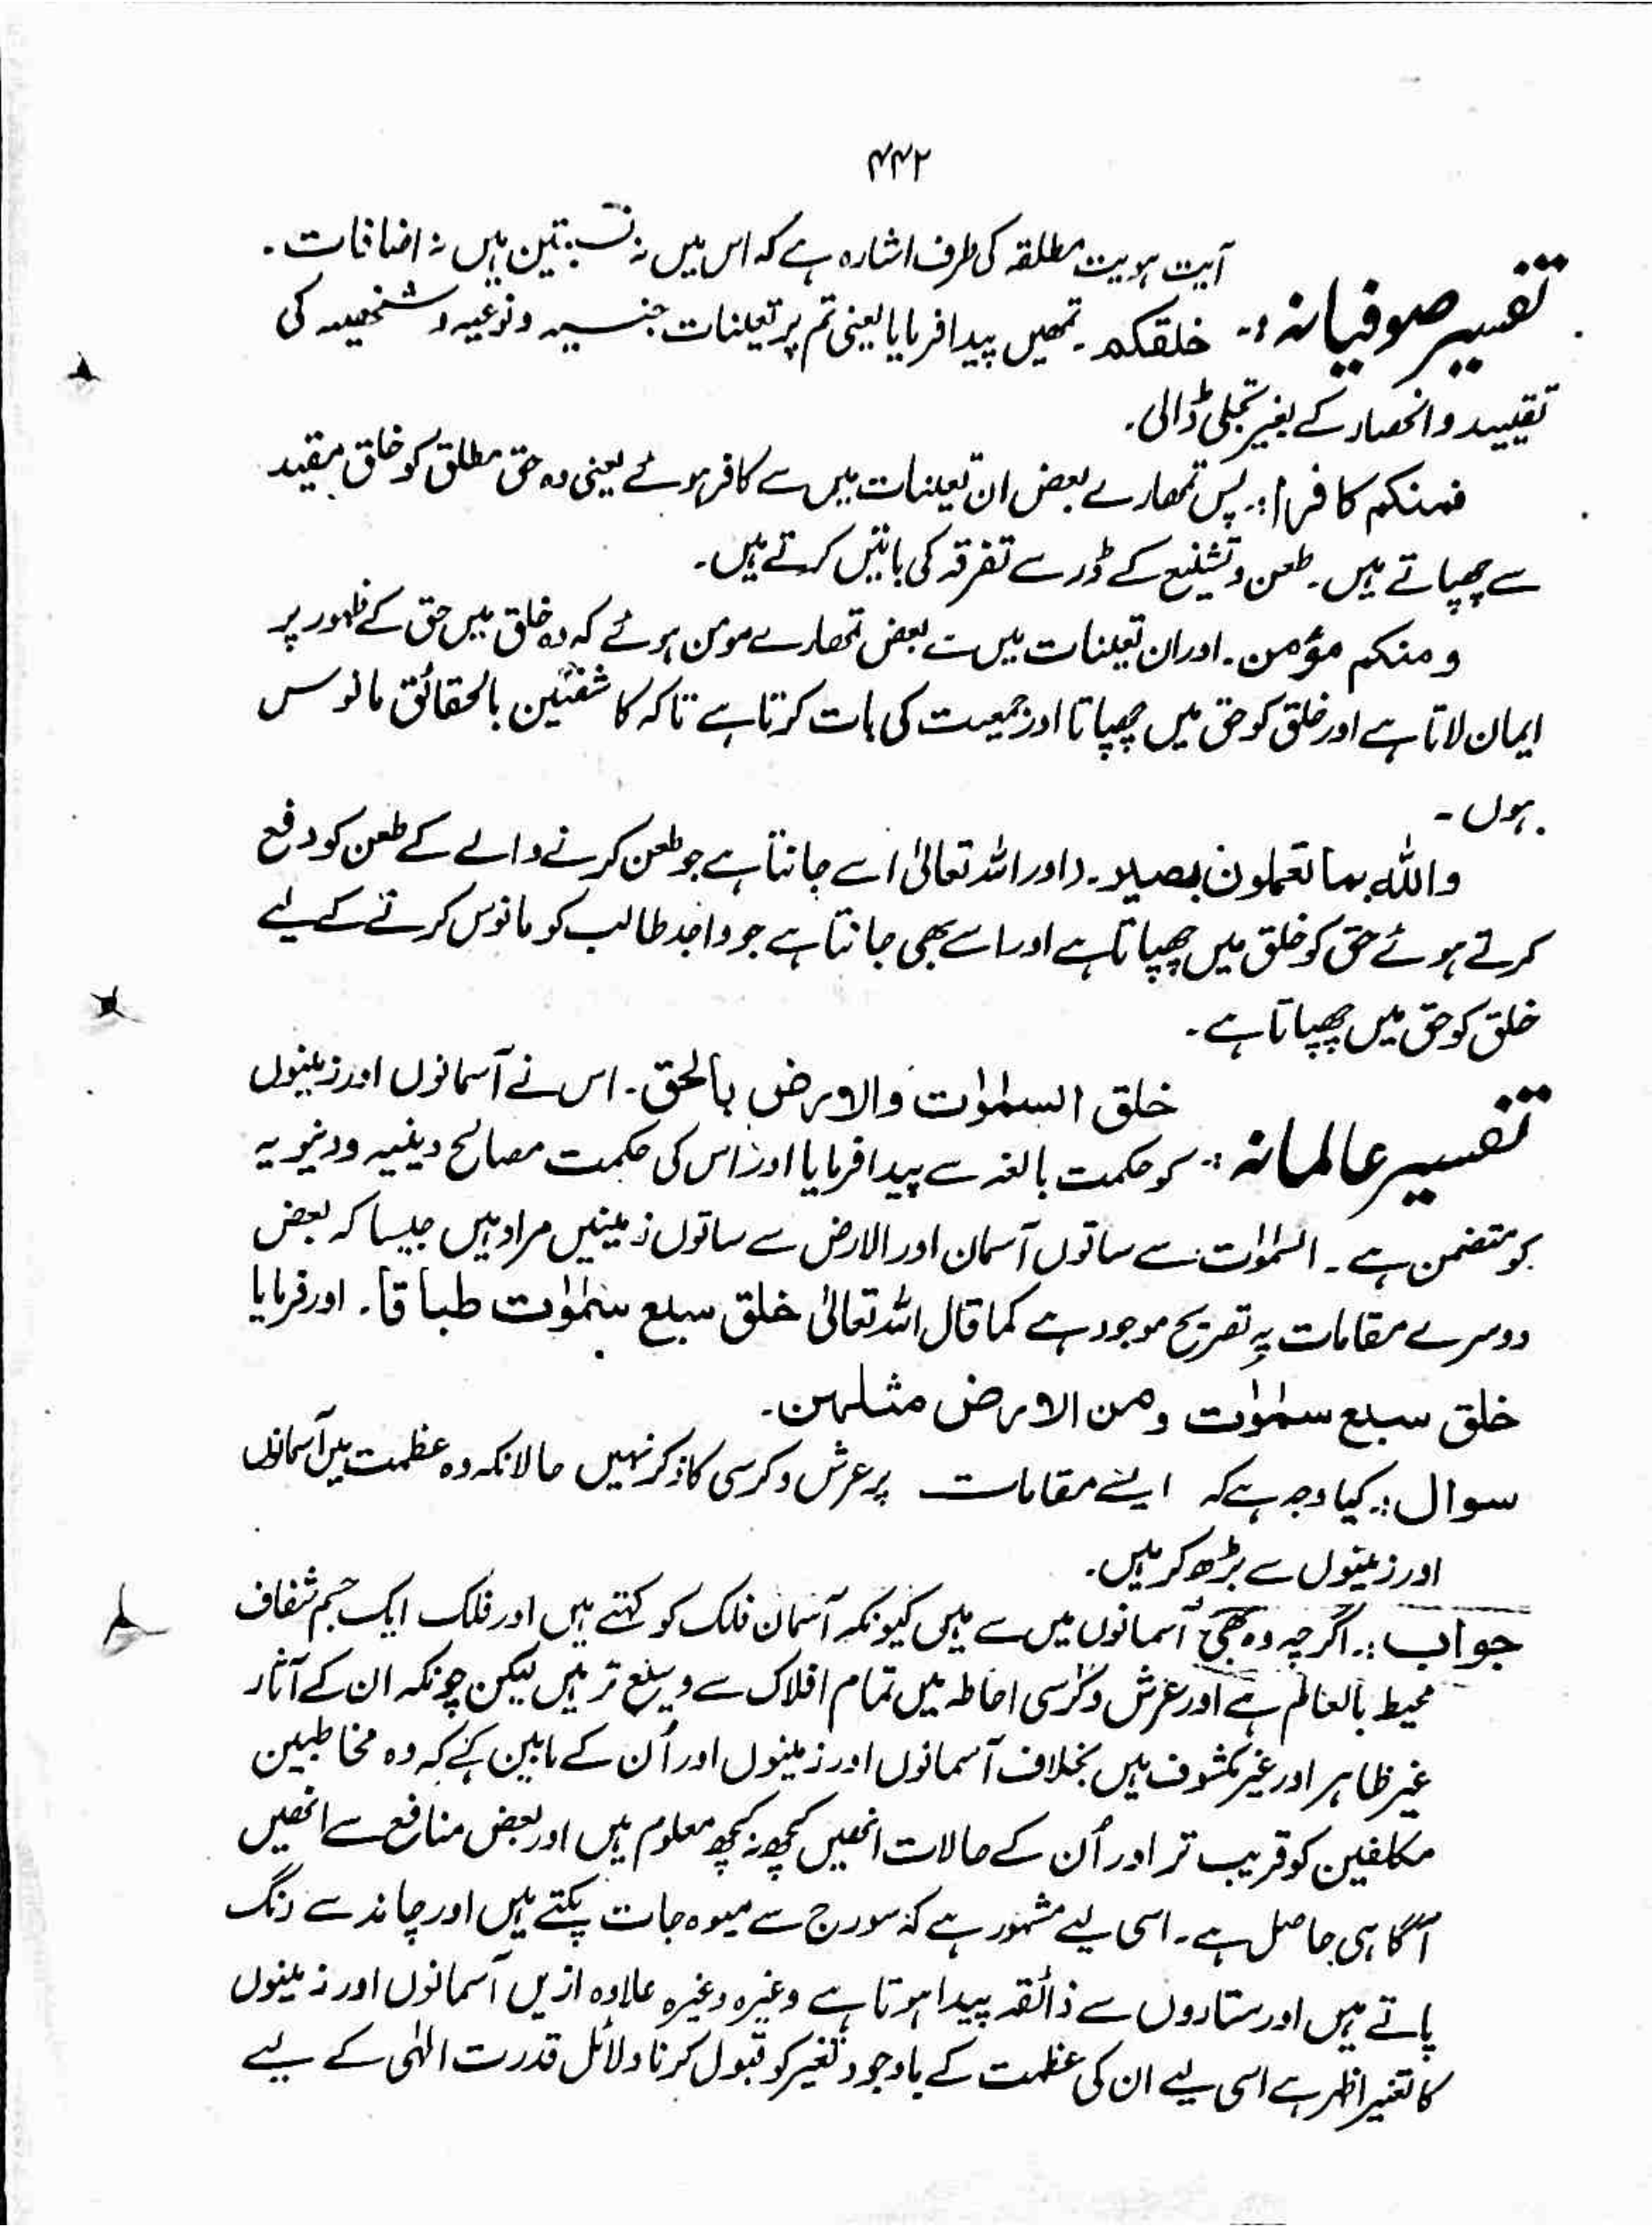 ۴۴۲
آیت ہویت مطلقہ کی طرف اشارہ ہے کہ اس میں نہ نسبتیں ہیں نہ اضافات ۔
تفسیر صوفیانہ :- خلقکم ۔ تمھیں پیدا فرمایا یعنی تم پر تعینات جنسیہ و نوعیہ و شخصیہ کی
تقیید و انحصار کے بغیر تجلی ڈالی ۔
فمنکم کافر :۔ پس تمھارے بعض ان تعینات میں سے کافر ہوئے یعنی وہ حق مطلق کو خلق مقید
سے چھپاتے ہیں ۔ طعن و تشنیع کے ڈر سے تفرقہ کی باتیں کرتے ہیں ۔
و منکم مؤمن ۔ اور ان تعینات میں سے بعض تمھارے مومن ہوئے کہ وہ خلق میں حق کے ظہور پر
ایمان لاتا ہے اور خلق کو حق میں چھپاتا اور جمیعت کی بات کرتا ہے تاکہ کاشفین بالحقائق مانوس
ہوں ۔
واللہ بما تعملون بصیر ۔ اور اللہ تعالیٰ اسے جانتا ہے جو طعن کرنے والے کے طعن کو دفع
کرتے ہوئے حق کو خلق میں چھپاتا ہے اور اسے بھی جانتا ہے جو واجد طالب کو مانوس کرتے کے لیے
خلق کو حق میں چھپاتا ہے ۔
خلق السمٰوٰت والارض بالحق ۔ اس نے آسمانوں اور زمینوں
تفسیر عالمانہ :- کو حکمت بالغہ سے پیدا فرمایا اور اس کی حکمت مصالح دینیہ و دنیویہ
کو متضمن ہے ۔ السمٰوٰت سے ساتوں آسمان اور الارض سے ساتوں زمینیں مراد ہیں جیسا کہ بعض
دوسرے مقامات پر تصریح موجود ہے کما قال اللہ تعالیٰ خلق سبع سمٰوٰت طباقا ۔ اور فرمایا
خلق سبع سمٰوٰت ومن الارض مثلہن ۔
سوال :۔ کیا وجہ ہے کہ ایسے مقامات پر عرش و کرسی کا ذکر نہیں حالانکہ وہ عظمت میں آسمانوں
اور زمینوں سے بڑھ کر ہیں ۔
جواب :۔ اگرچہ وہ بھی آسمانوں میں سے ہیں کیونکہ آسمان فلک کو کہتے ہیں اور فلک ایک جسم شفاف
محیط بالعالم ہے اور عرش و کرسی احاطہ میں تمام افلاک سے وسیع تر ہیں لیکن چونکہ ان کے آثار
غیر ظاہر اور غیر مکشوف ہیں بخلاف آسمانوں اور زمینوں اور اُن کے مابین کے کہ وہ مخاطبین
مکلفین کو قریب تر اور اُن کے حالات انھیں کچھ نہ کچھ معلوم ہیں اور بعض منافع سے انھیں
آگاہی حاصل ہے ۔ اسی لیے مشہور ہے کہ سورج سے میوہ جات پکتے ہیں اور چاند سے رنگ
پاتے ہیں اور ستاروں سے ذائقہ پیدا ہوتا ہے وغیرہ وغیرہ علاوہ ازیں آسمانوں اور زمینوں
کا تغیر اظہر ہے اسی لیے ان کی عظمت کے باوجود تغیر کو قبول کرنا دلائل قدرت الٰہی کے لیے